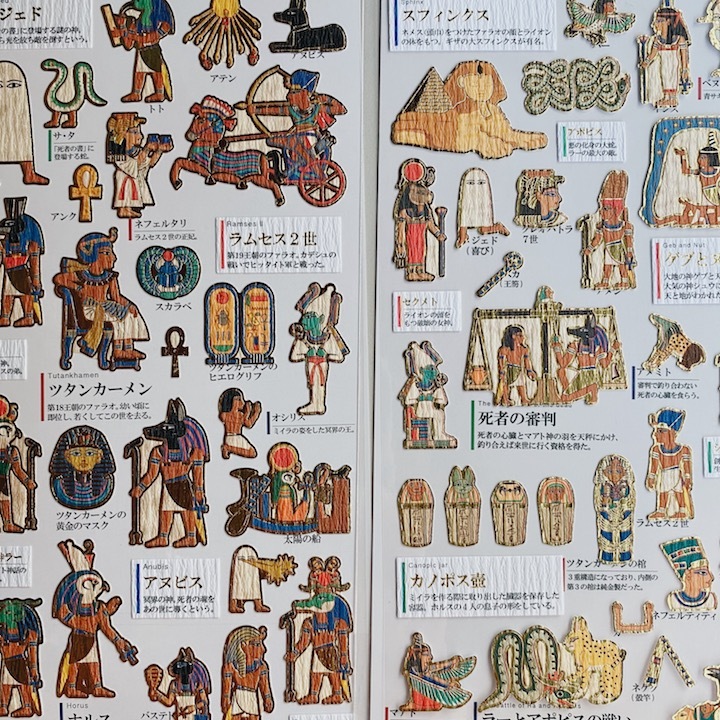 ジェド
トト
アテン
アヌビス
サ・タ
「死者の書」に
登場する蛇。
アンク
ネフェルタリ
ラムセス2世の正妃。
Ramses II
ラムセス2世
第19王朝のファラオ。カデシュの
戦いでヒッタイト軍と戦った。
スカラベ
ツタンカーメンの
ヒエログリフ
Tutankhamen
ツタンカーメン
第18王朝のファラオ。幼い頃に
即位し、若くしてこの世を去る。
オシリス
ミイラの姿をした冥界の王。
ツタンカーメンの
黄金のマスク
太陽の船
Anubis
アヌビス
冥界の神。死者の魂を
あの世に導くという。
Horus
ホルス
バステト
スフィンクス
ネメス(頭巾)をつけたファラオの顔とライオン
の体をもつ。ギザの大スフィンクスが有名。
アポピス
悪の化身の大蛇。
ラーの最大の敵。
メジェド
(喜び)
クレオパトラ
7世
(王笏)
Geb and Nut
セクメト
ライオンの頭を
The
死者の審判
死者の心臓とマアト神の羽を天秤にかけ、
釣り合えば来世に行く資格を得た。
アメミト
審判で釣り合わない
死者の心臓を食らう。
ラムセス2世
Canopic jar
カノポス壺
ミイラを作る際に取り出した臓器を保存した
容器。ホルスの4人の息子の形をしている。
ツタンカーメンの棺
3重構造になっており、内側の
第3の棺は純金製だった。
ネフェルティティ
ネケク
(殻竿)
マアト
ラーとアポピスの戦い